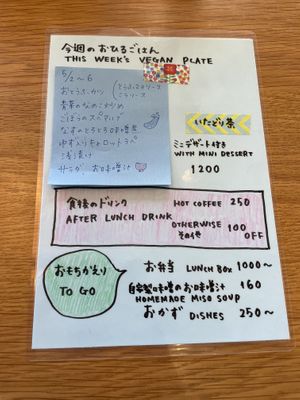 今週のおひるごはん
THIS WEEK'S VEGAN PLATE
5/2〜6
おとうふカツ
青菜のなめこ炒め
ごぼうのスペアリブ
なすのとろとろ味噌煮
ゆず入りキャロットラペ
浅漬け
サラダ お味噌汁
いたどり茶
ミニデザート付き
WITH MINI DESSERT
1200
食後のドリンク HOT COFFEE 250
AFTER LUNCH DRINK OTHERWISE 100
その他 OFF
おもちかえり
TO GO
お弁当 LUNCH BOX 1000〜
自家製味噌のお味噌汁 160
HOMEMADE MISO SOUP
おかず DISHES 250〜